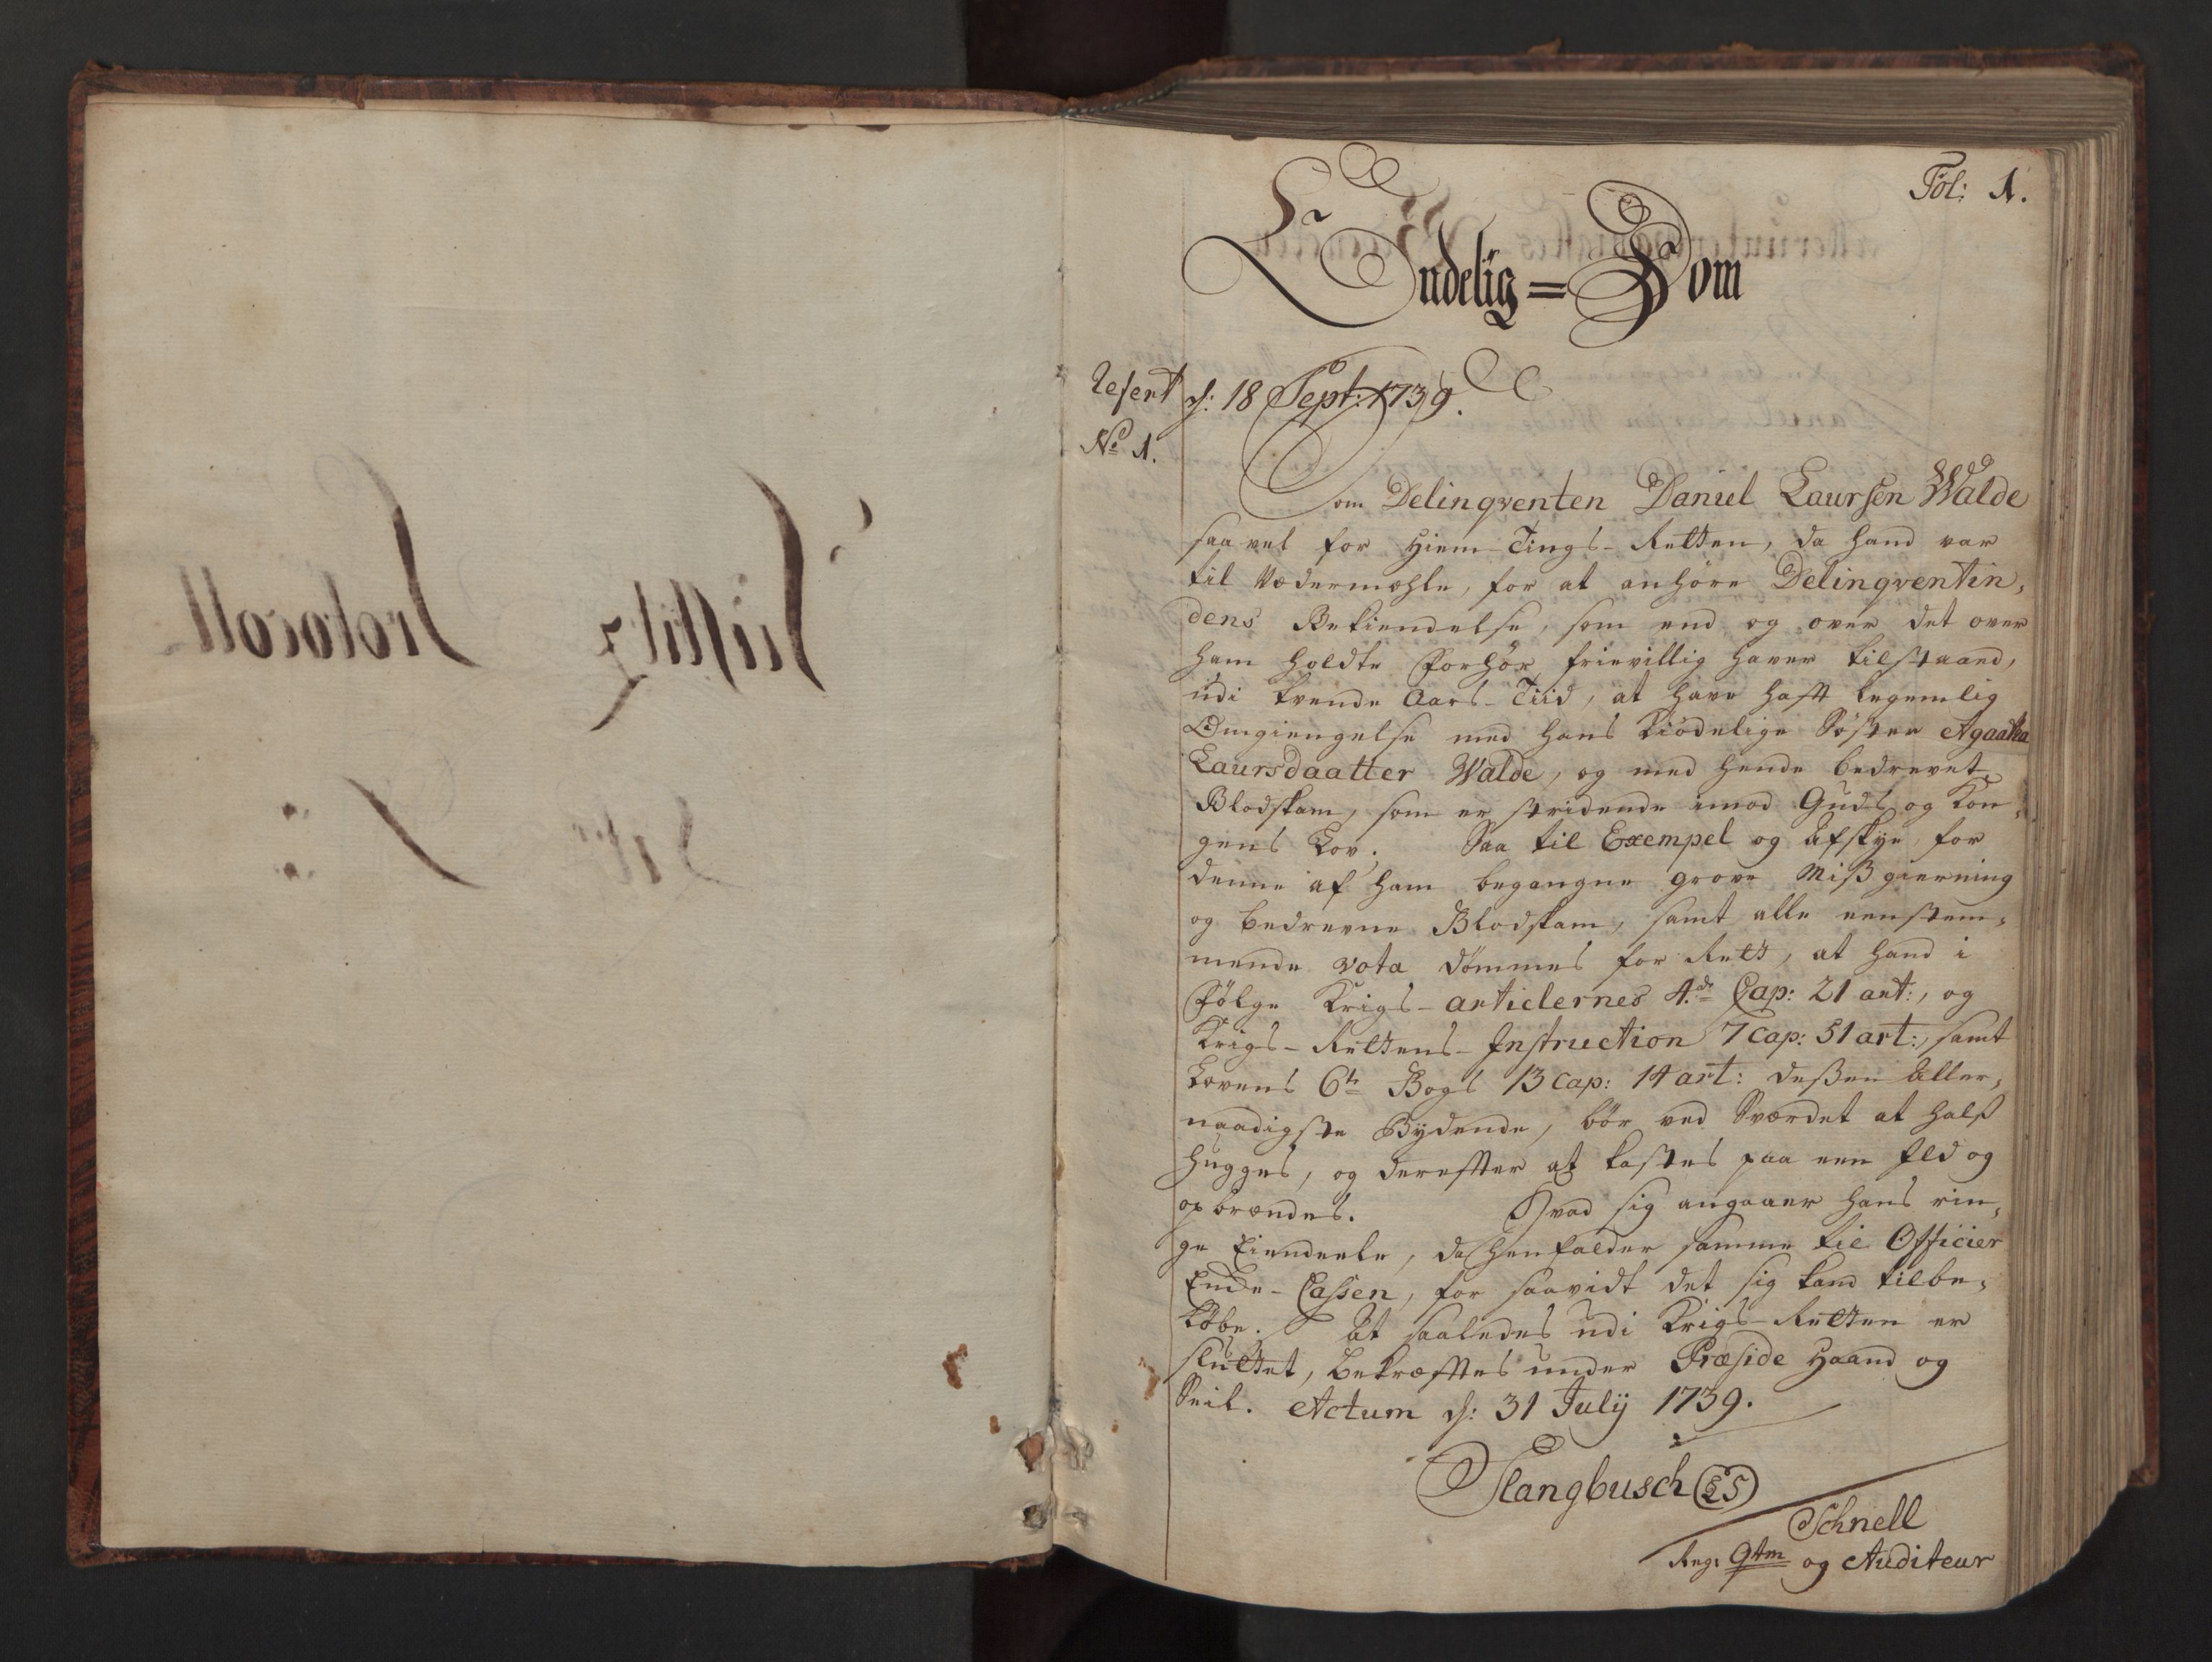 Justitz Protocoll
Fol: 1.
Endelig = Dom
Refert d: 18 Sept: 1739.
No 1.
Som Delinqventen Daniel Laursen Walde
saavel for Hiem-Tings-Retten, da hand var
til Vedermæhle, for at anhøre Delinqventin,
dens Bekiendelse, som end og over det over
ham holdte Forhør frievillig haver tilstaaed,
udi tvende Aars-Tiid, at have haft legemlig
Omgiengelse med hans Kiødelige Søster Agaatha
Laursdaatter Walde, og med hende bedrevet
Blodskam, som er stridende imod Guds og Kon,
gens Lov. Saa til Exempel og Afskye for
denne af ham begangne grove Misgierning
og bedrevne Blodskam, samt alle eenstem,
mende vota dømmes for Rett, at hand i
Følge Krigs-articlernes 4de Cap: 21 art:, og
Krigs-Rettens-Instruction 7 Cap: 51 art:, samt
Lovens 6te Bogs 13 Cap: 14 art: deßen Aller,
naadigste Bydende, bør ved Sværdet at halß
hugges, og derefter at kastes paa een Ild og
opbrændes. Hvad sig angaaer hans rin,
ge Eiendeele, da henfalder samme til Officier
Enke-Cassen, for saavidt det sig kand tilbe,
løbe. At saaledes udi Krigs-Retten er
sluttet, bekræfftes under Præside Haand og
Seil. Actum d: 31 Julij 1739.
Slangbusch LS
Schnell
Reg: Qtm og Auditeur